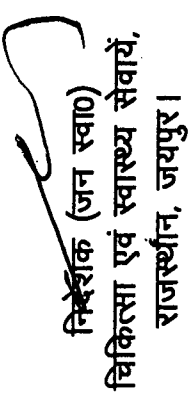 निदेशक (जन स्वा0)
चिकित्सा एवं स्वास्थ्य सेवायें,
राजस्थान, जयपुर।